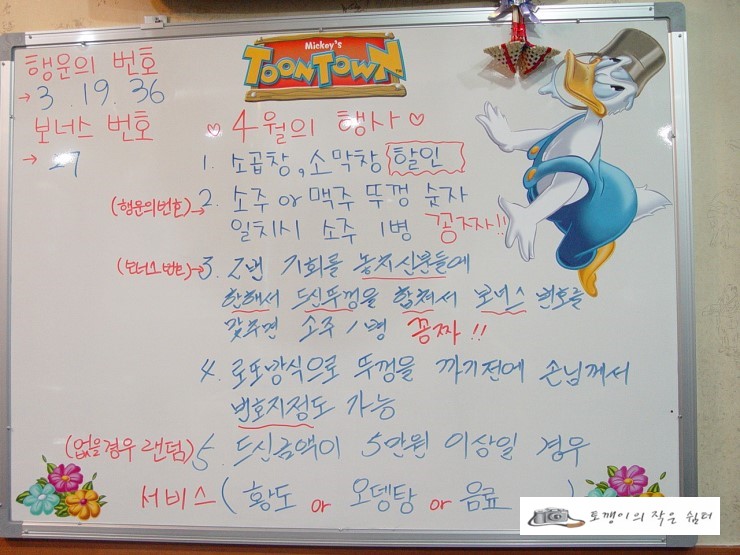 Mickey's
TOONTOWN
행운의 번호
→ 3. 19. 36
보너스 번호
→ 27
♡ 4월의 행사 ♡
1. 소곱창, 소막창 할인
(행운의번호)→ 2. 소주 or 맥주 뚜껑 숫자
일치시 소주 1병 꽁짜!!
(보너스번호)→ 3. 2번 기회를 놓치신분들에
한해서 드신뚜껑을 합쳐서 보너스 번호를
맞추면 소주 1병 꽁짜!!
4. 로또방식으로 뚜껑을 까기전에 손님께서
번호지정도 가능
(없을경우 랜덤) 5. 드신금액이 5만원 이상일 경우
서비스 (황도 or 오뎅탕 or 음료 )
토깽이의 작은 쉼터